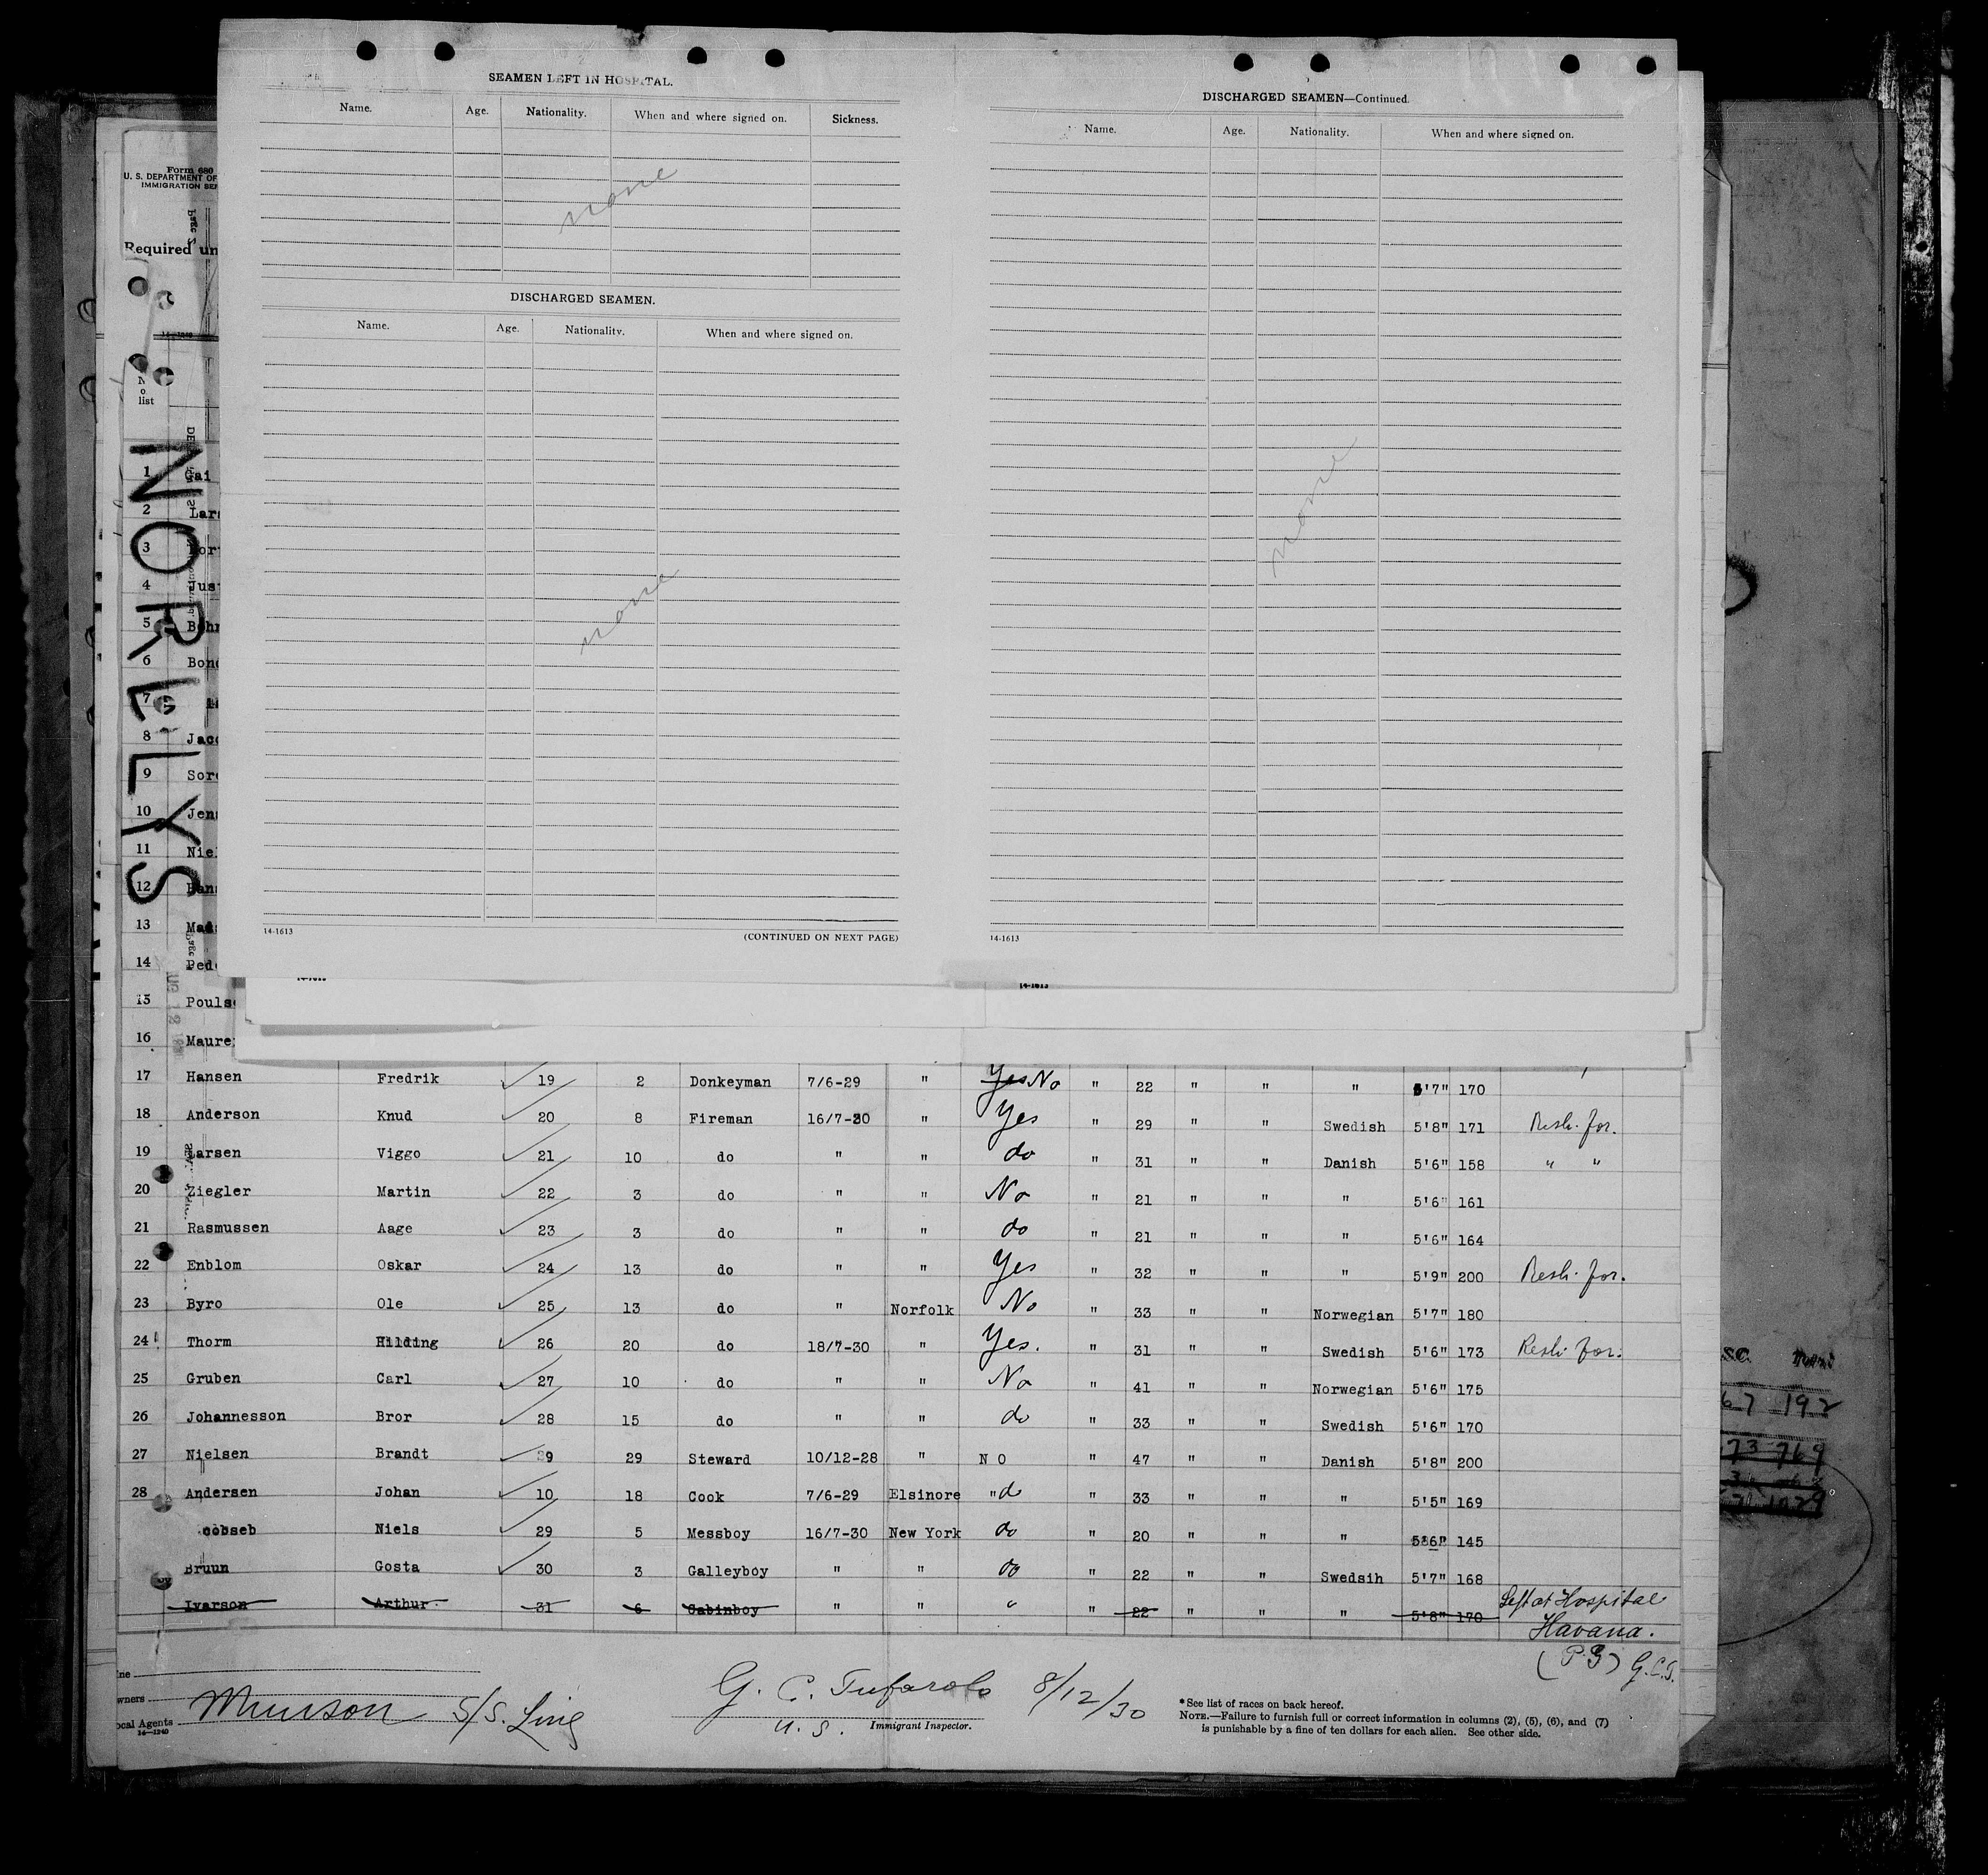 SEAMEN LEFT IN HOSPITAL.
Name. Age. Nationality. When and where signed on. Sickness.
none
DISCHARGED SEAMEN.
Name. Age. Nationality. When and where signed on.
none
14-1613 (CONTINUED ON NEXT PAGE)
DISCHARGED SEAMEN—Continued.
Name. Age. Nationality. When and where signed on.
none
14-1613
14-1613
Form 680
U. S. DEPARTMENT OF
IMMIGRATION SER
Required un
list
NORLYS
1 Gai
2 Lars
3
4 Jus
5 Bohr
6 Bond
7
8 Jaco
9 Sore
10 Jens
11 Niel
12 Hans
13 Mads
14 Pede
15 Pouls
16 Maure
17 Hansen Fredrik 19 2 Donkeyman 7/6-29 " Yes No " 22 " " " 5'7" 170
18 Anderson Knud 20 8 Fireman 16/7-30 " Yes " 29 " " Swedish 5'8" 171 Resh. for.
19 Larsen Viggo 21 10 do " " do " 31 " " Danish 5'6" 158 " "
20 Ziegler Martin 22 3 do " " No " 21 " " " 5'6" 161
21 Rasmussen Aage 23 3 do " " do " 21 " " " 5'6" 164
22 Enblom Oskar 24 13 do " " Yes " 32 " " " 5'9" 200 Resh. for.
23 Byro Ole 25 13 do " Norfolk No " 33 " " Norwegian 5'7" 180
24 Thorm Hilding 26 20 do 18/7-30 " Yes. " 31 " " Swedish 5'6" 173 Resh. for.
25 Gruben Carl 27 10 do " " No " 41 " " Norwegian 5'6" 175
26 Johannesson Bror 28 15 do " " do " 33 " " Swedish 5'6" 170
27 Nielsen Brandt 39 29 Steward 10/12-28 " N O " 47 " " Danish 5'8" 200
28 Andersen Johan 10 18 Cook 7/6-29 Elsinore "do " 33 " " " 5'5" 169
cobseb Niels 29 5 Messboy 16/7-30 New York do " 20 " " " 5'6" 145
Bruun Gosta 30 3 Galleyboy " " do " 22 " " Swedsih 5'7" 168
Ivarson Arthur 31 6 Cabinboy " " " " 22 " " " 5'8" 170 Left at Hospital
Havana.
G.C.T.
ine
wners
ocal Agents Munson S/S. Line
14-1240
G. C. Tufarolo 8/12/30
U. S. Immigrant Inspector.
*See list of races on back hereof.
NOTE.—Failure to furnish full or correct information in columns (2), (5), (6), and (7)
is punishable by a fine of ten dollars for each alien. See other side.
67 192
73 769